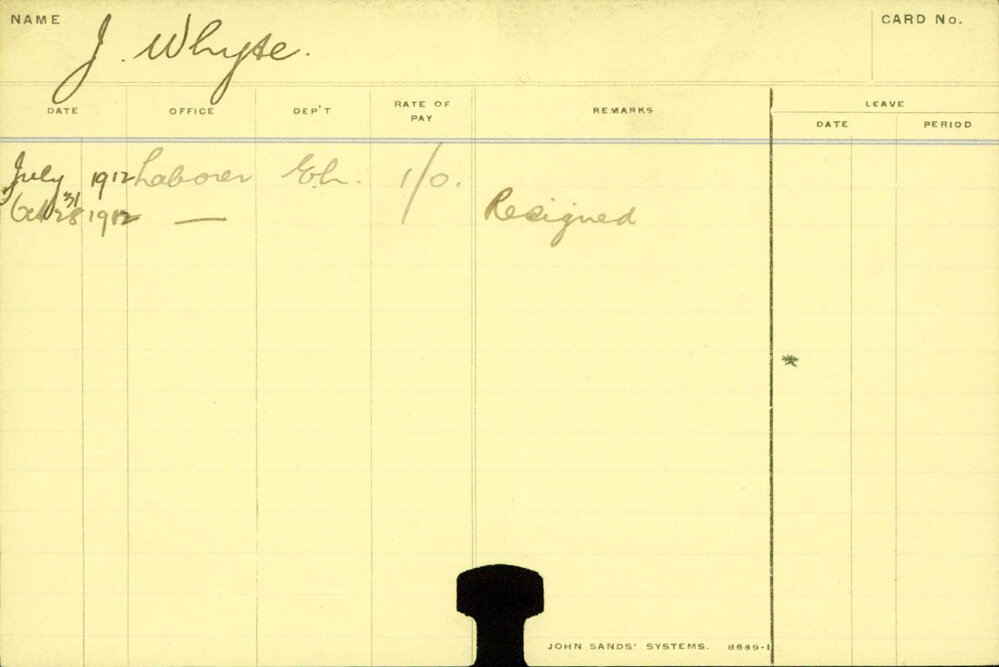 NAME J. Whyte. CARD No.
DATE OFFICE DEP'T RATE OF PAY REMARKS LEAVE
DATE PERIOD
July 1912 Laborer 1/0.
Oct 28 31 1912 — Resigned
JOHN SANDS' SYSTEMS. 8689-1